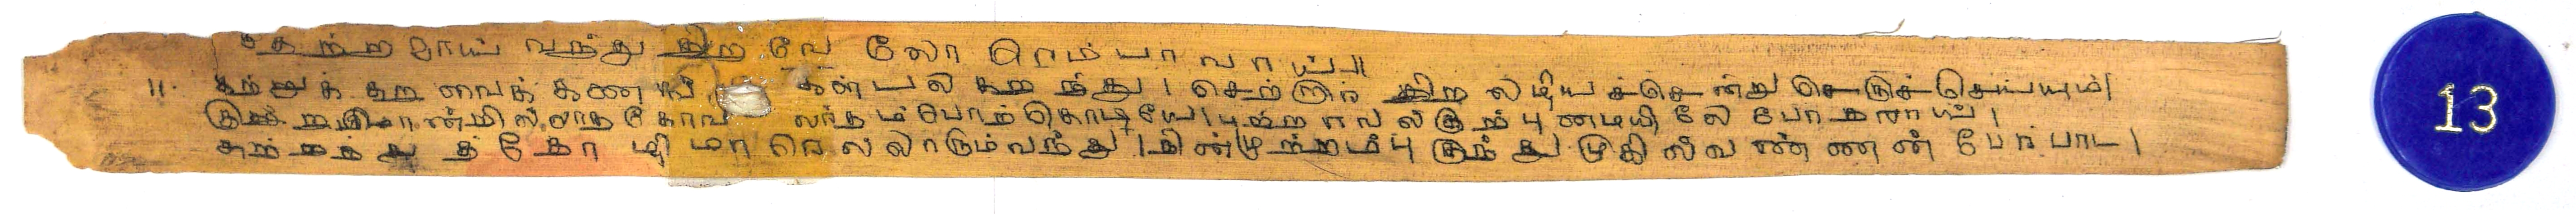 தேற்றமாய் வந்து திற வே லோ ரெம் பா வாய்॥
11. கற்றுக் கற வைக் கண ங்கள் பல கற ந்து । செற்றார் திற லழிய ச்சென்று செருச் செய்யும்।
குற்ற மொன்றில்லாத கோவ லர்த ம்பொற்கொடியே। புற்ற ரவல்குற் புனமயி லே போதராய்।
சுற்றத்து த் தோ ழிமா ரெல்லாரும்வந்து । நின்முற்றம் புகுந்து முகில்வ ண்ணன் பேர் பாட।
13